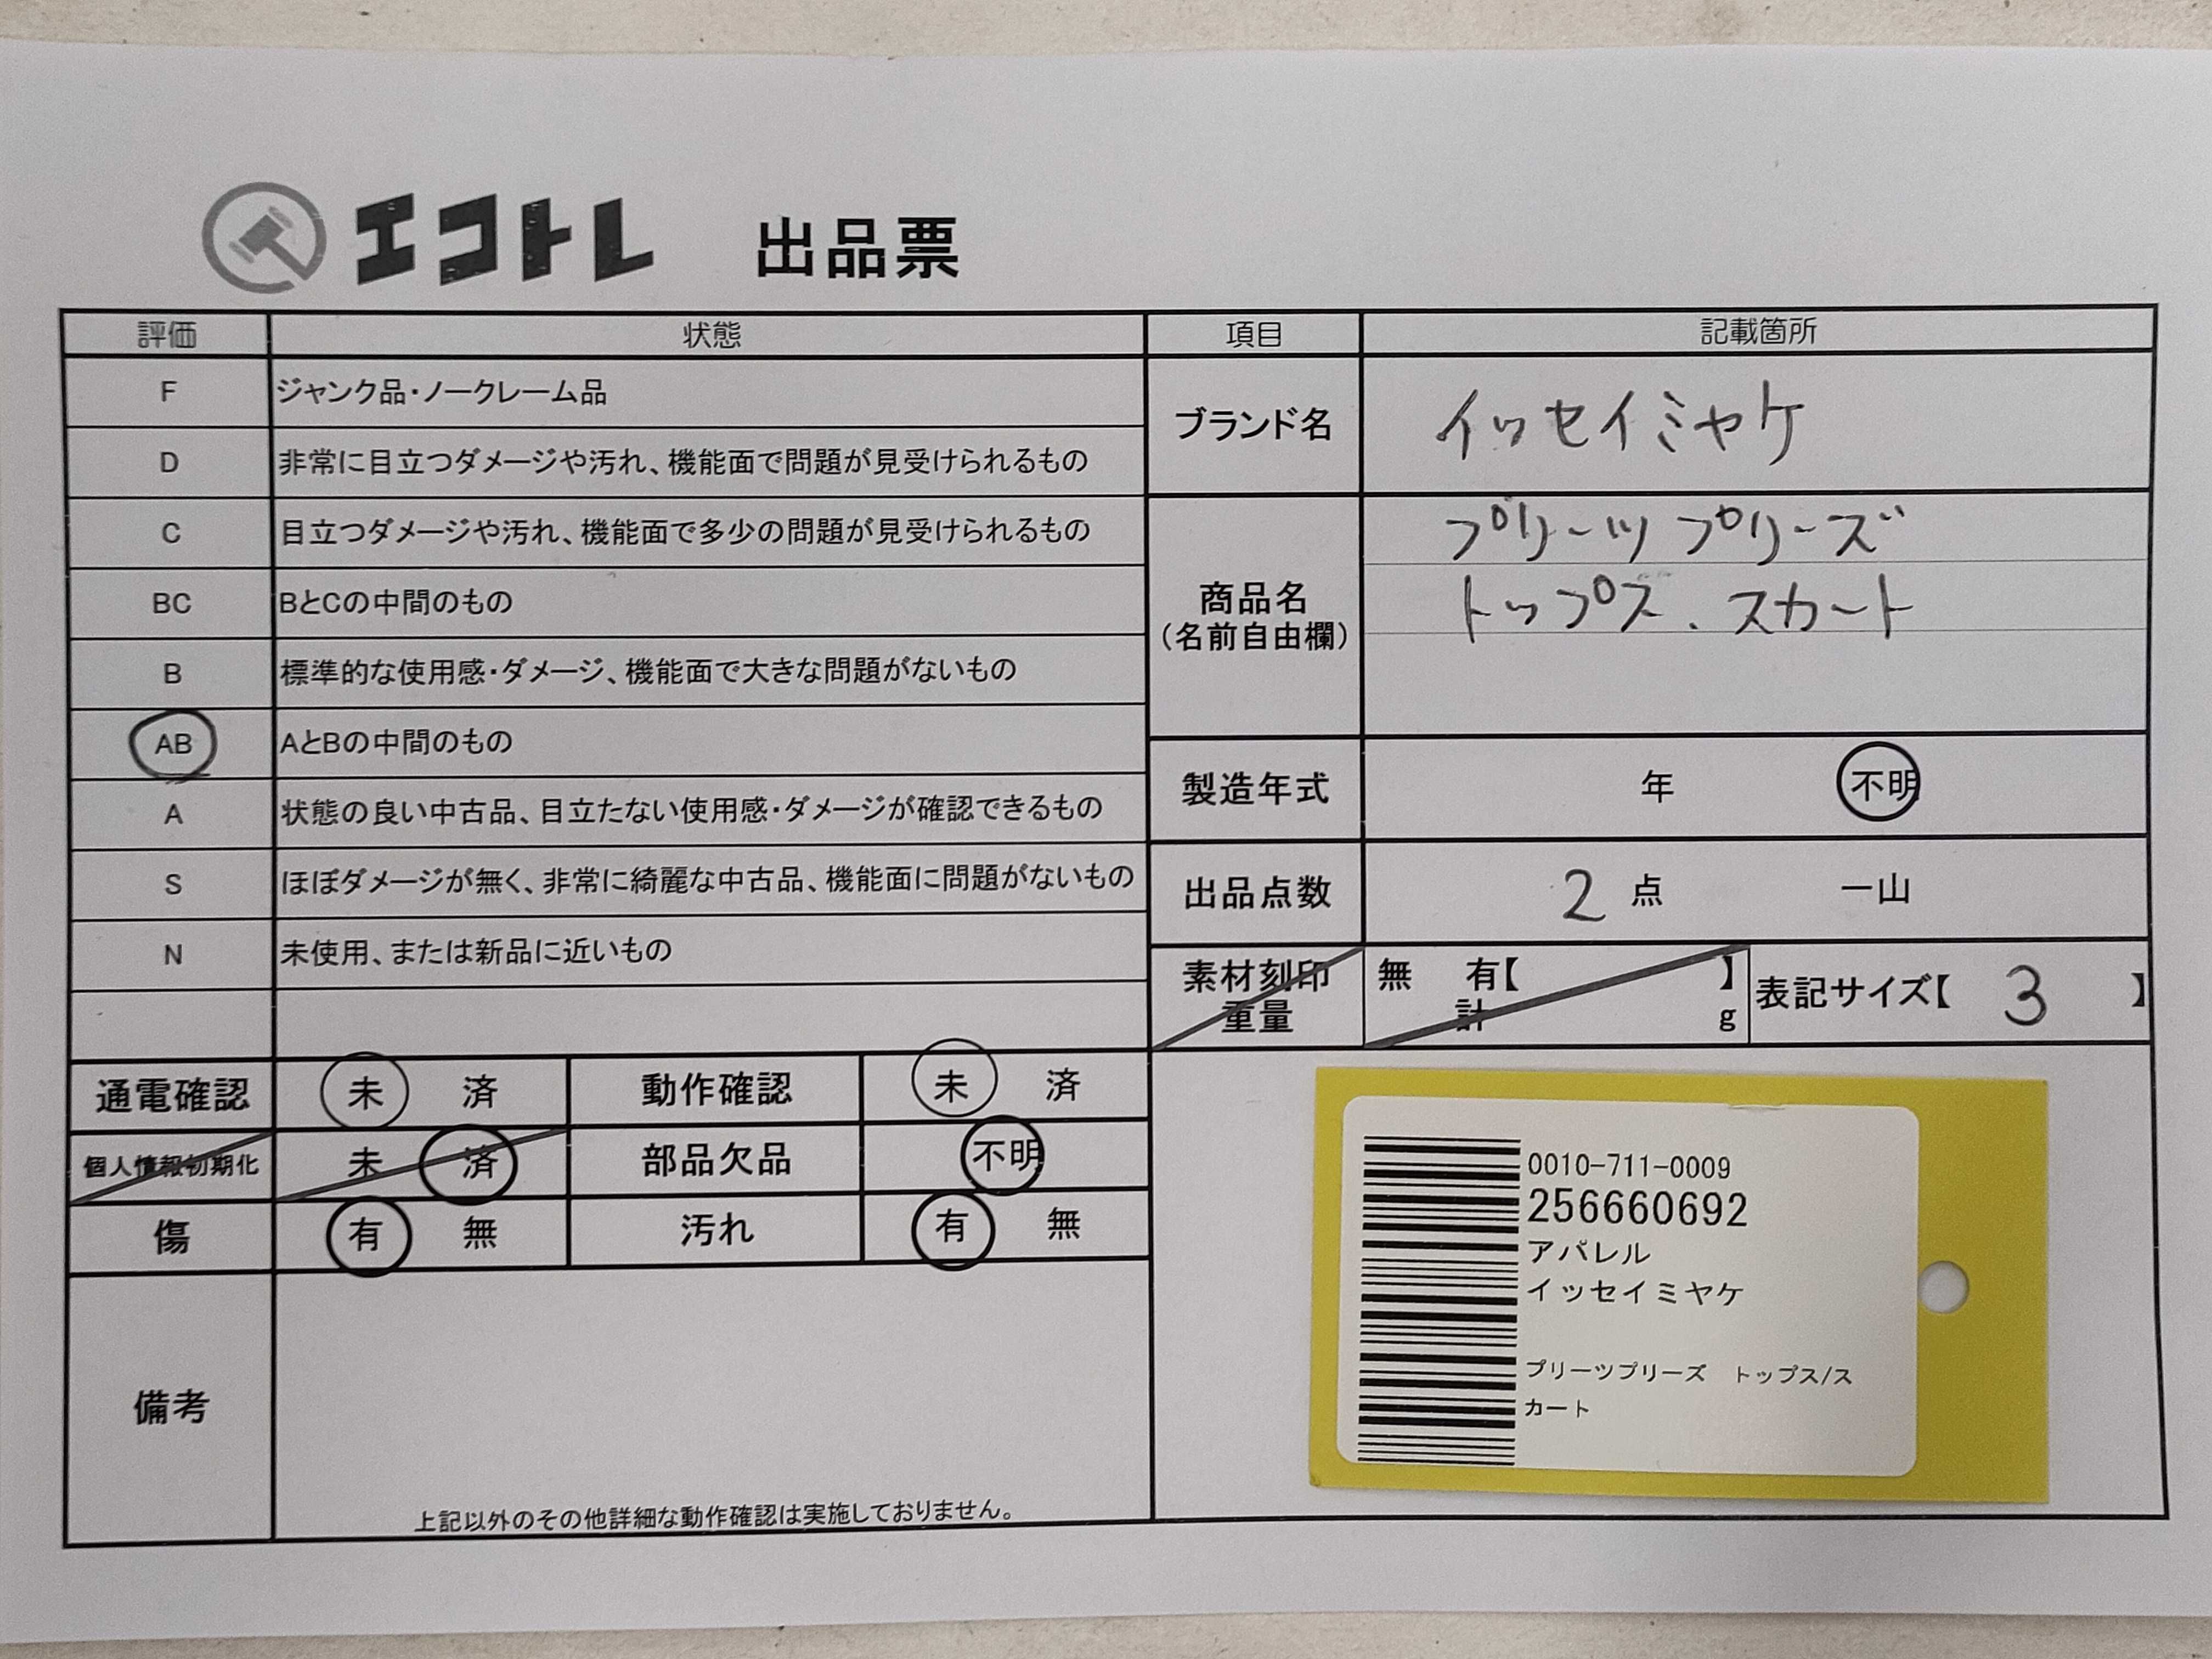 エコトレ 出品票
評価 状態 項目 記載箇所
F ジャンク品・ノークレーム品
D 非常に目立つダメージや汚れ、機能面で問題が見受けられるもの
C 目立つダメージや汚れ、機能面で多少の問題が見受けられるもの
BC BとCの中間のもの
B 標準的な使用感・ダメージ、機能面で大きな問題がないもの
AB AとBの中間のもの
A 状態の良い中古品、目立たない使用感・ダメージが確認できるもの
S ほぼダメージが無く、非常に綺麗な中古品、機能面に問題がないもの
N 未使用、または新品に近いもの
ブランド名 イッセイミヤケ
商品名
(名前自由欄)
プリーツ プリーズ
トップス、スカート
製造年式 年 不明
出品点数 2 点 一山
素材刻印
重量
無 有【 】
計 g
表記サイズ【 3 】
通電確認 未 済 動作確認 未 済
個人情報初期化 未 済 部品欠品 不明
傷 有 無 汚れ 有 無
備考
上記以外のその他詳細な動作確認は実施しておりません。
0010-711-0009
256660692
アパレル
イッセイミヤケ
プリーツプリーズ トップス/ス
カート